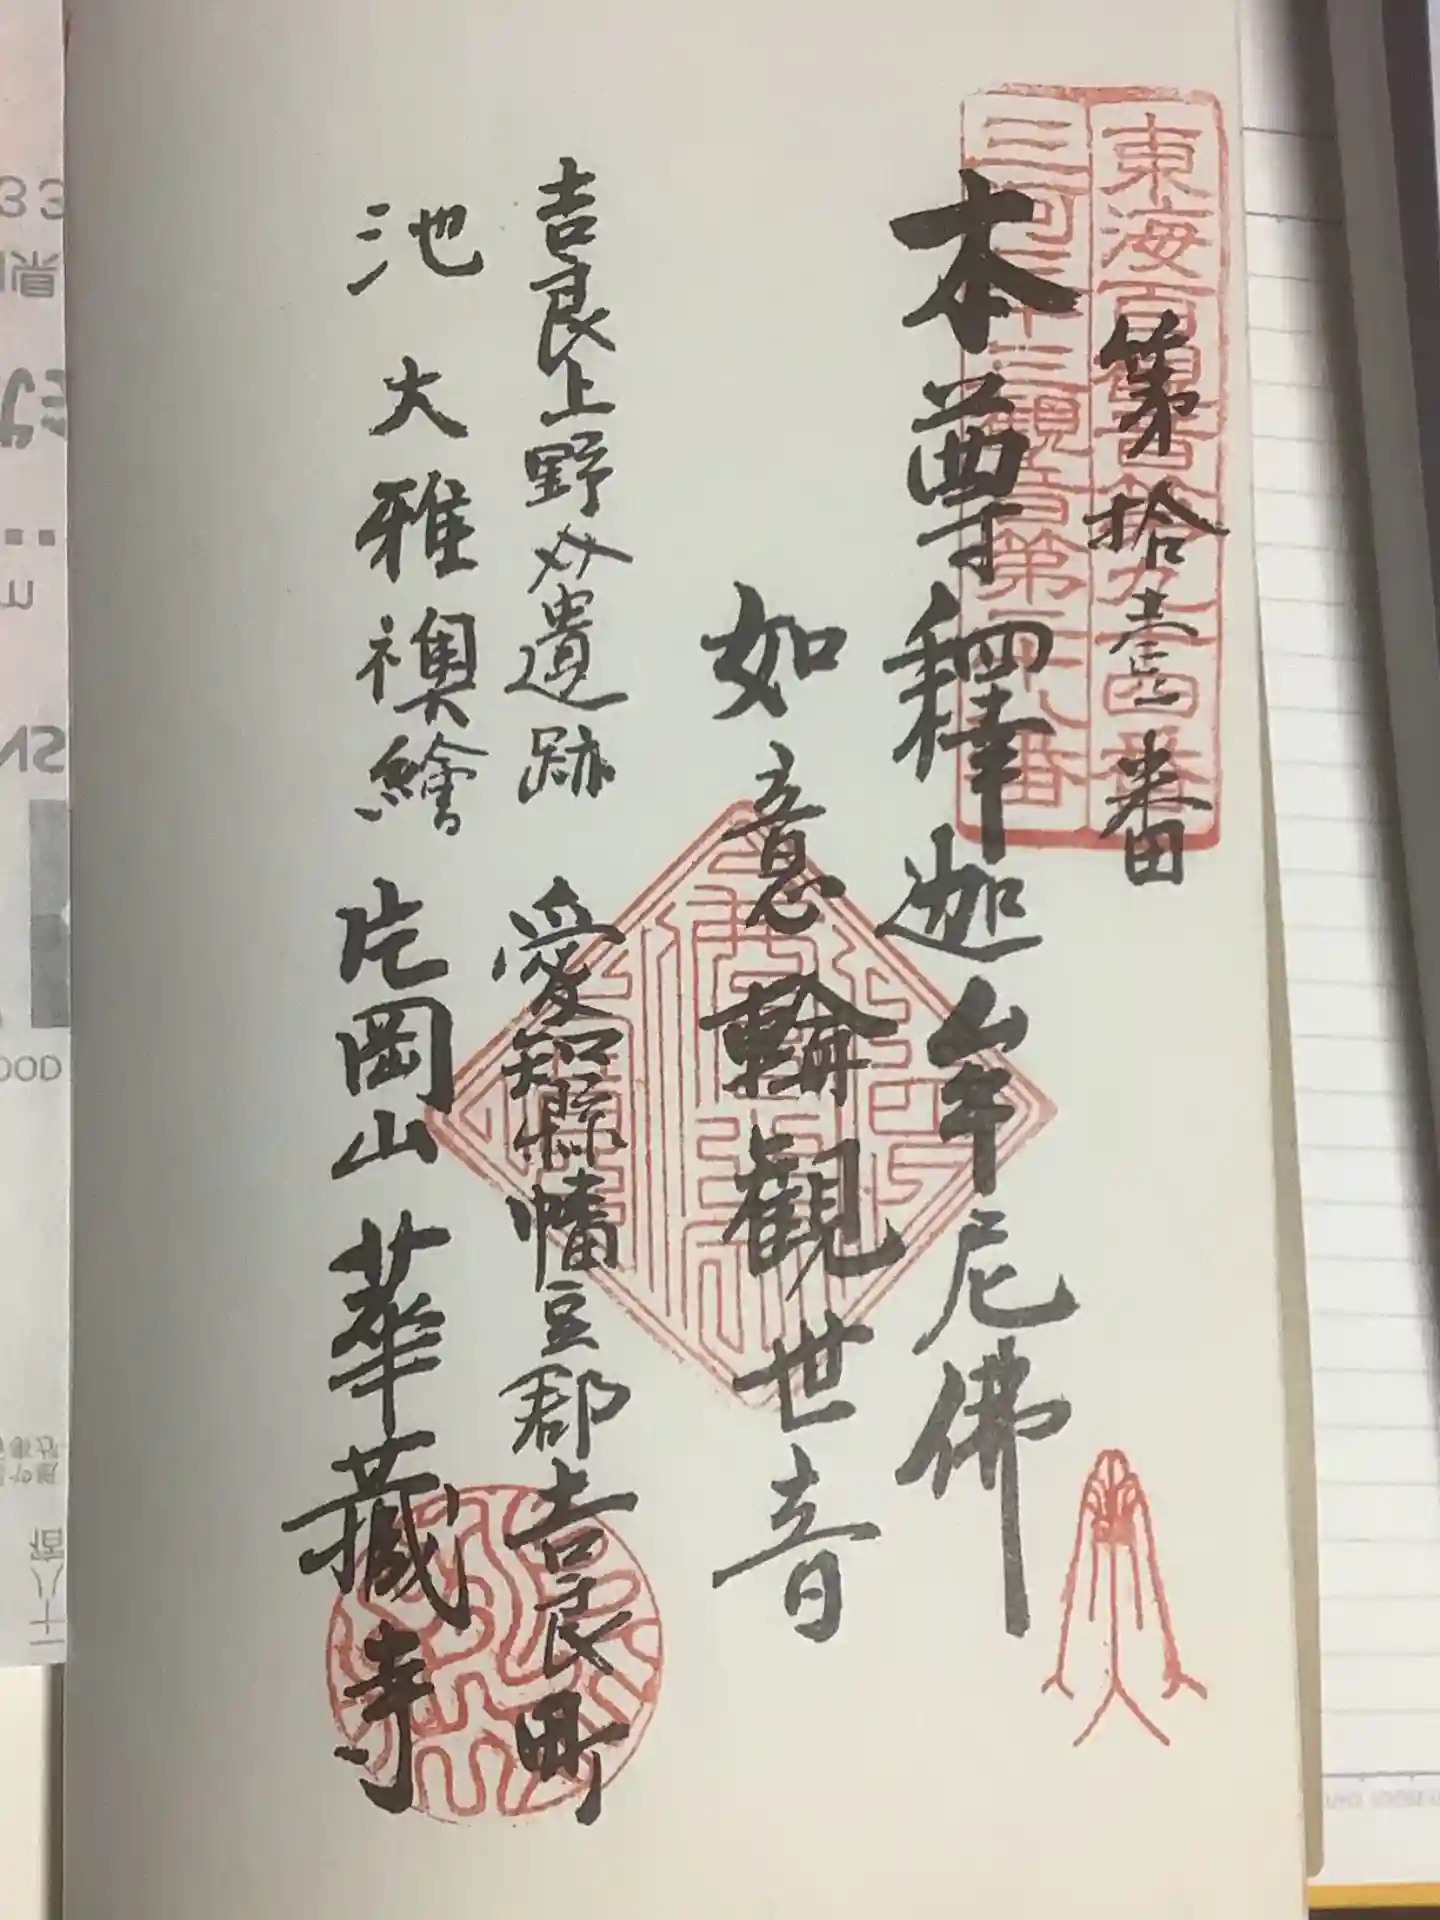 東海百観音第九十四番
三河三十三観音第二十八番
第拾壹番
本尊釋迦牟尼佛
如意輪觀世音
吉良上野公遺跡 愛知縣幡豆郡吉良町
池大雅襖繪 片岡山華藏寺
33
OOD